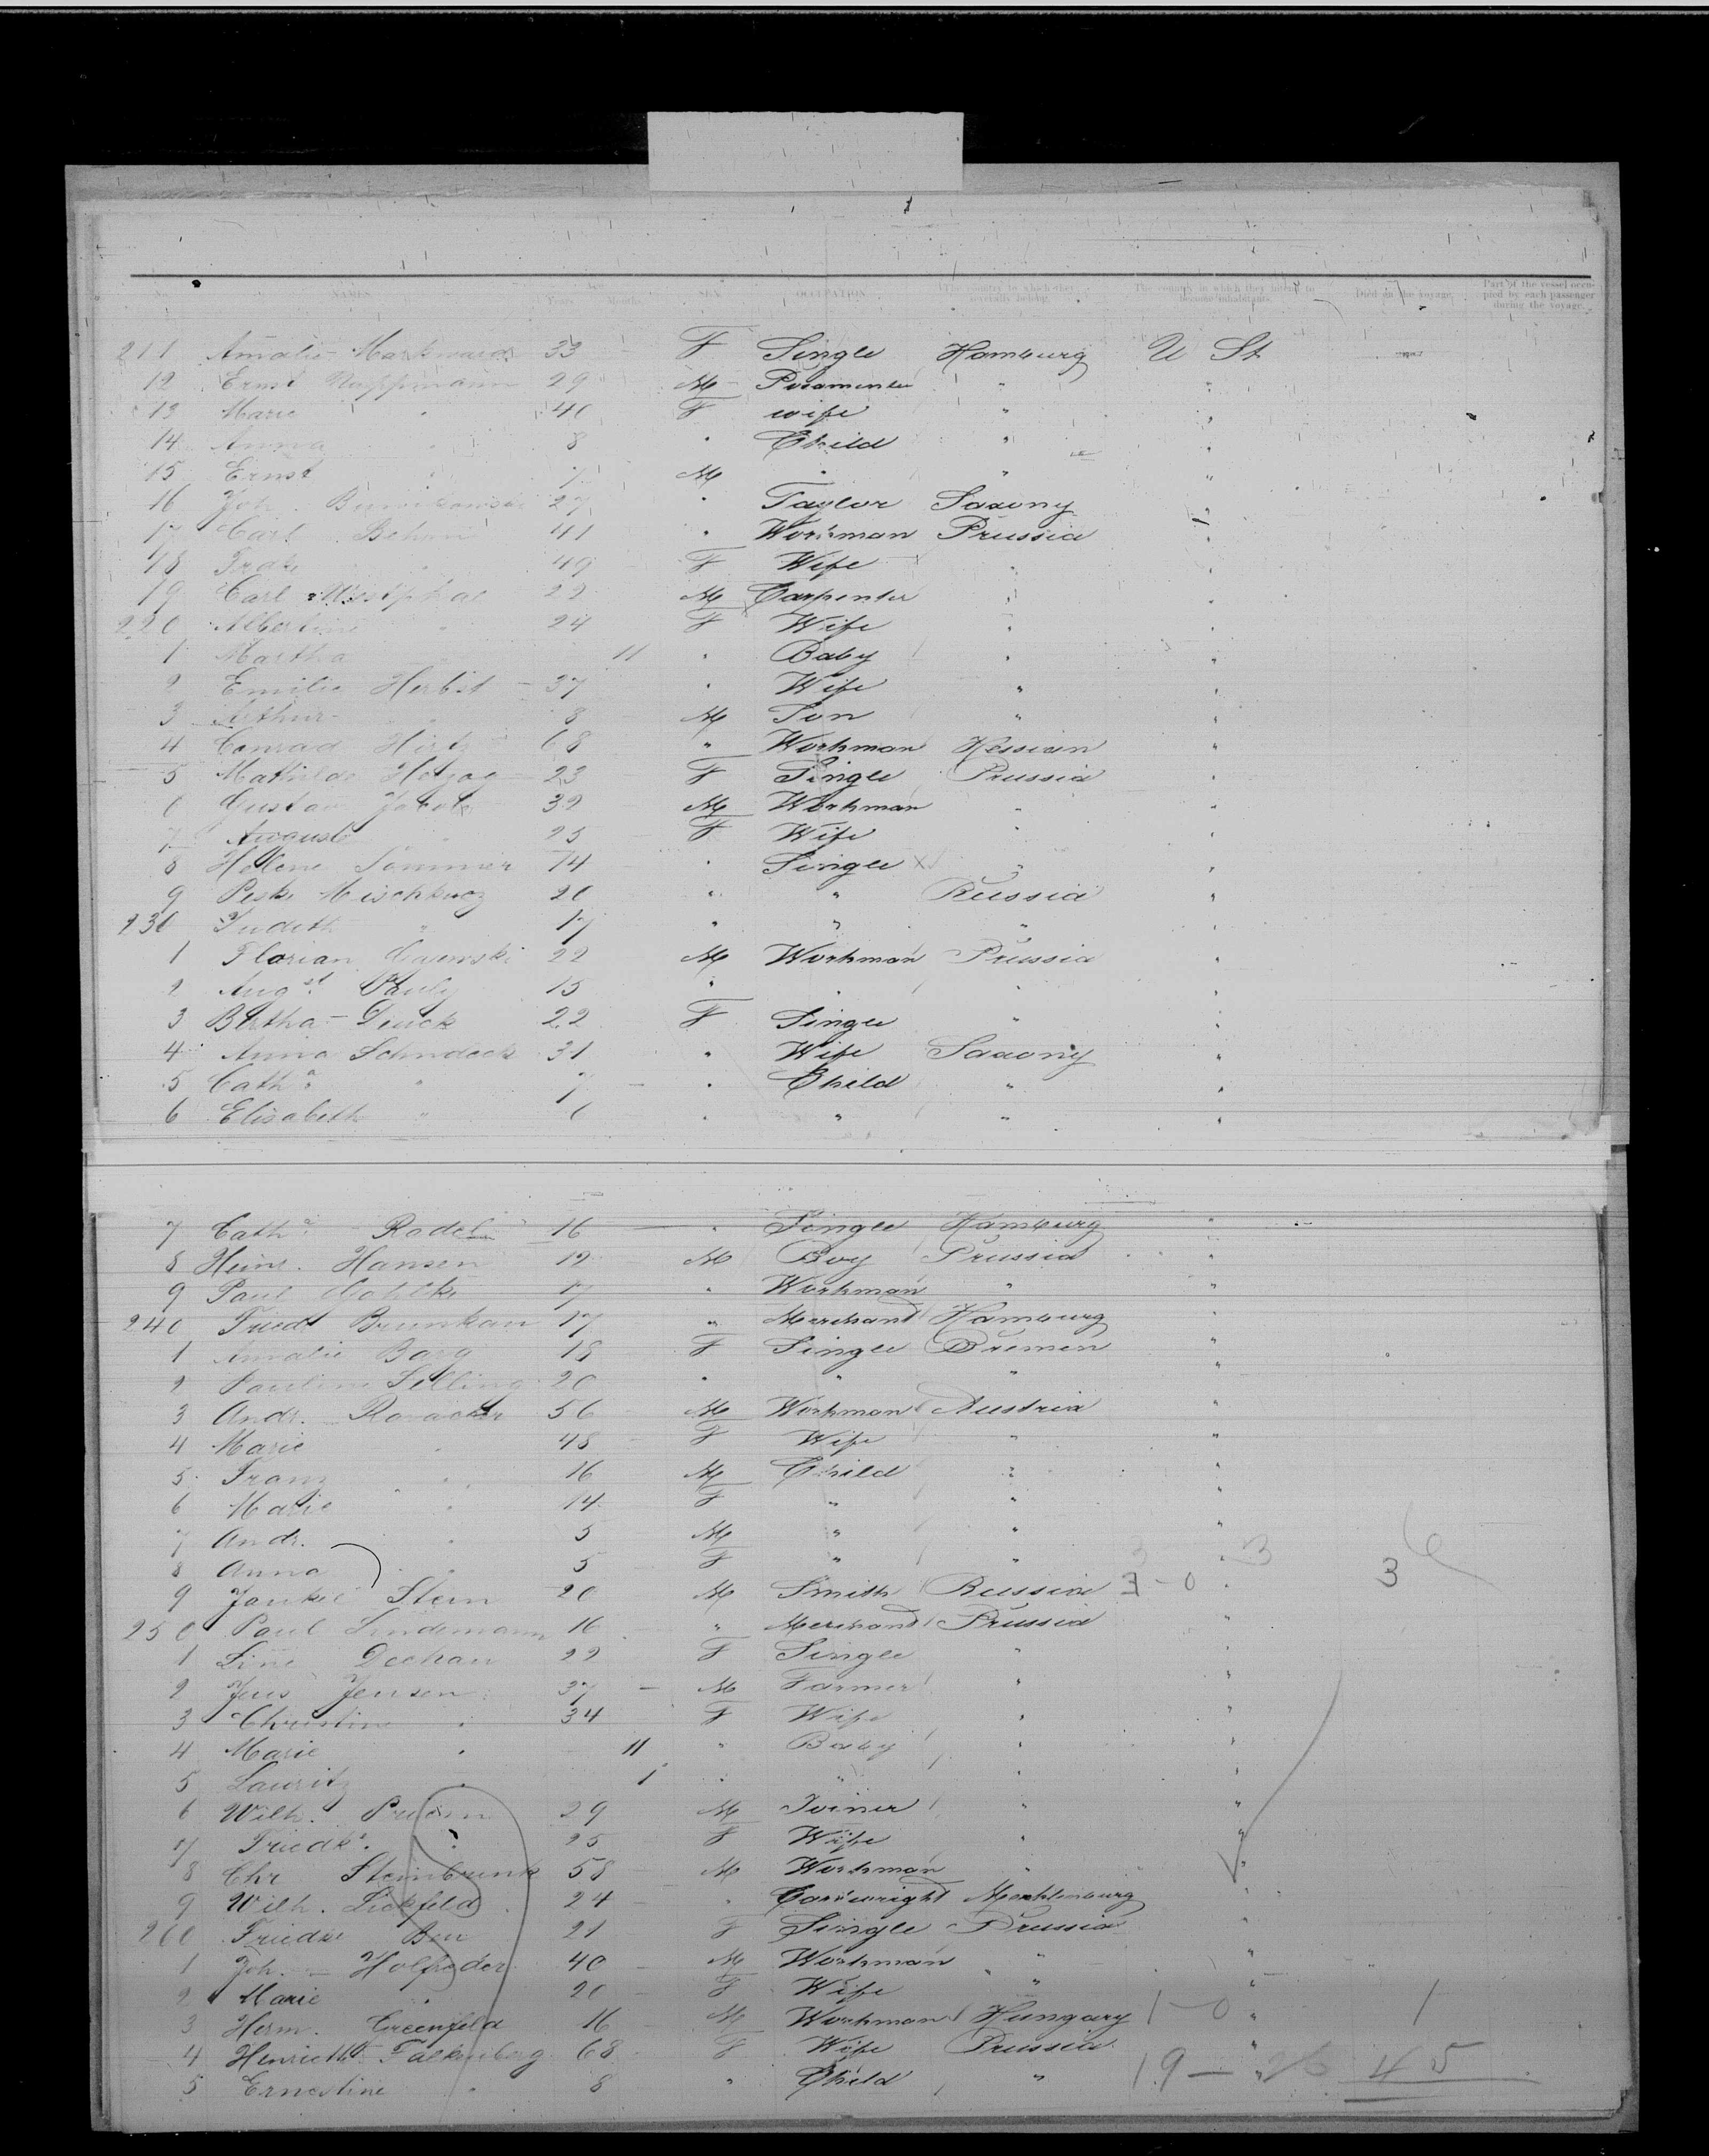 No. NAMES. Age Years Months SEX. OCCUPATION The country to which they severally belong. The country in which they intend to become inhabitants. Died on the voyage. Part of the vessel occupied by each passenger during the voyage.
211 Amalie Markward 33 F Single Hamburg U St
12 Ernst Nappmann 29 M "
13 Marie " 40 F wife " "
14 Anna " 8 " Child " "
15 Ernst " 7 M " " "
16 Joh. 27 " Taylor Saxony "
17 Carl Behm 41 " Workman Prussia "
18 " 49 F Wife " "
19 Carl Westphal 29 M Carpenter " "
220 Albertine " 24 F Wife " "
1 Martha 11 " Baby " "
2 Emilie Herbst 37 " Wife " "
3 Arthur " 8 M Son " "
4 Conrad Hirtz 68 " Workman Hessian "
5 Mathilde Herzog 23 F Single Prussia "
6 Gustav Jacob 39 M Workman " "
7 August " 25 F Wife " "
8 Helene Sommer 74 " Single X " "
9 Peske 20 " " Russia "
230 Judith " 17 " " " "
1 Florian Gajewski 22 M Workman Prussia "
2 Augst. Pauly 15 " " " "
3 Bertha Denck 22 F Single " "
4 Anna Schndeck 31 " Wife Saxony "
5 Catha. " 7 " Child " "
6 Elisabeth " 6 " " " "
7 Catha. Rodel 16 " Single Hamburg "
8 Heinr. Hansen 12 M Boy Prussia "
9 Paul Gohlke 17 " Workman " "
240 Friedr Brunkan 17 " Merchant Hamburg "
1 Amalie Borg 18 F Single Bremen "
2 Pauline Selling 20 " " " "
3 Andr. 56 M Workman Austria "
4 Marie " 48 F Wife " "
5 Franz " 16 M Child " "
6 Marie " 14 F " " "
7 Andr. " 5 M " " "
8 Anna " 5 F " " 3 " 3 6
9 Jankel Stern 20 M Smith Russia 3 - 0 " 3
250 Paul Lindemann 16 " Merchant Prussia "
1 Line Dechau 22 F Single " "
2 Jens Jensen 37 M Farmer " "
3 Christine " 34 F Wife " "
4 Marie " 11 " Baby " "
5 Lauritz " 1 " " " "
6 Wilh. 29 M Joiner " "
7 Friedke. " 25 F Wife " "
8 Chr Steinbrink 58 M Workman " "
9 Wilh. Lickfeld 24 " Cartwright Mecklenburg "
260 Friedke 21 F Single Prussia "
1 Joh. 40 M Workman " "
2 Marie " 20 F Wife " "
3 Herm. Greenfeld 16 M Workman Hungary 1 - 0 " 1
4 Henriette Falkenberg 68 F Wife Prussia "
5 Ernestine " 8 " Child " 19 - " 26 45